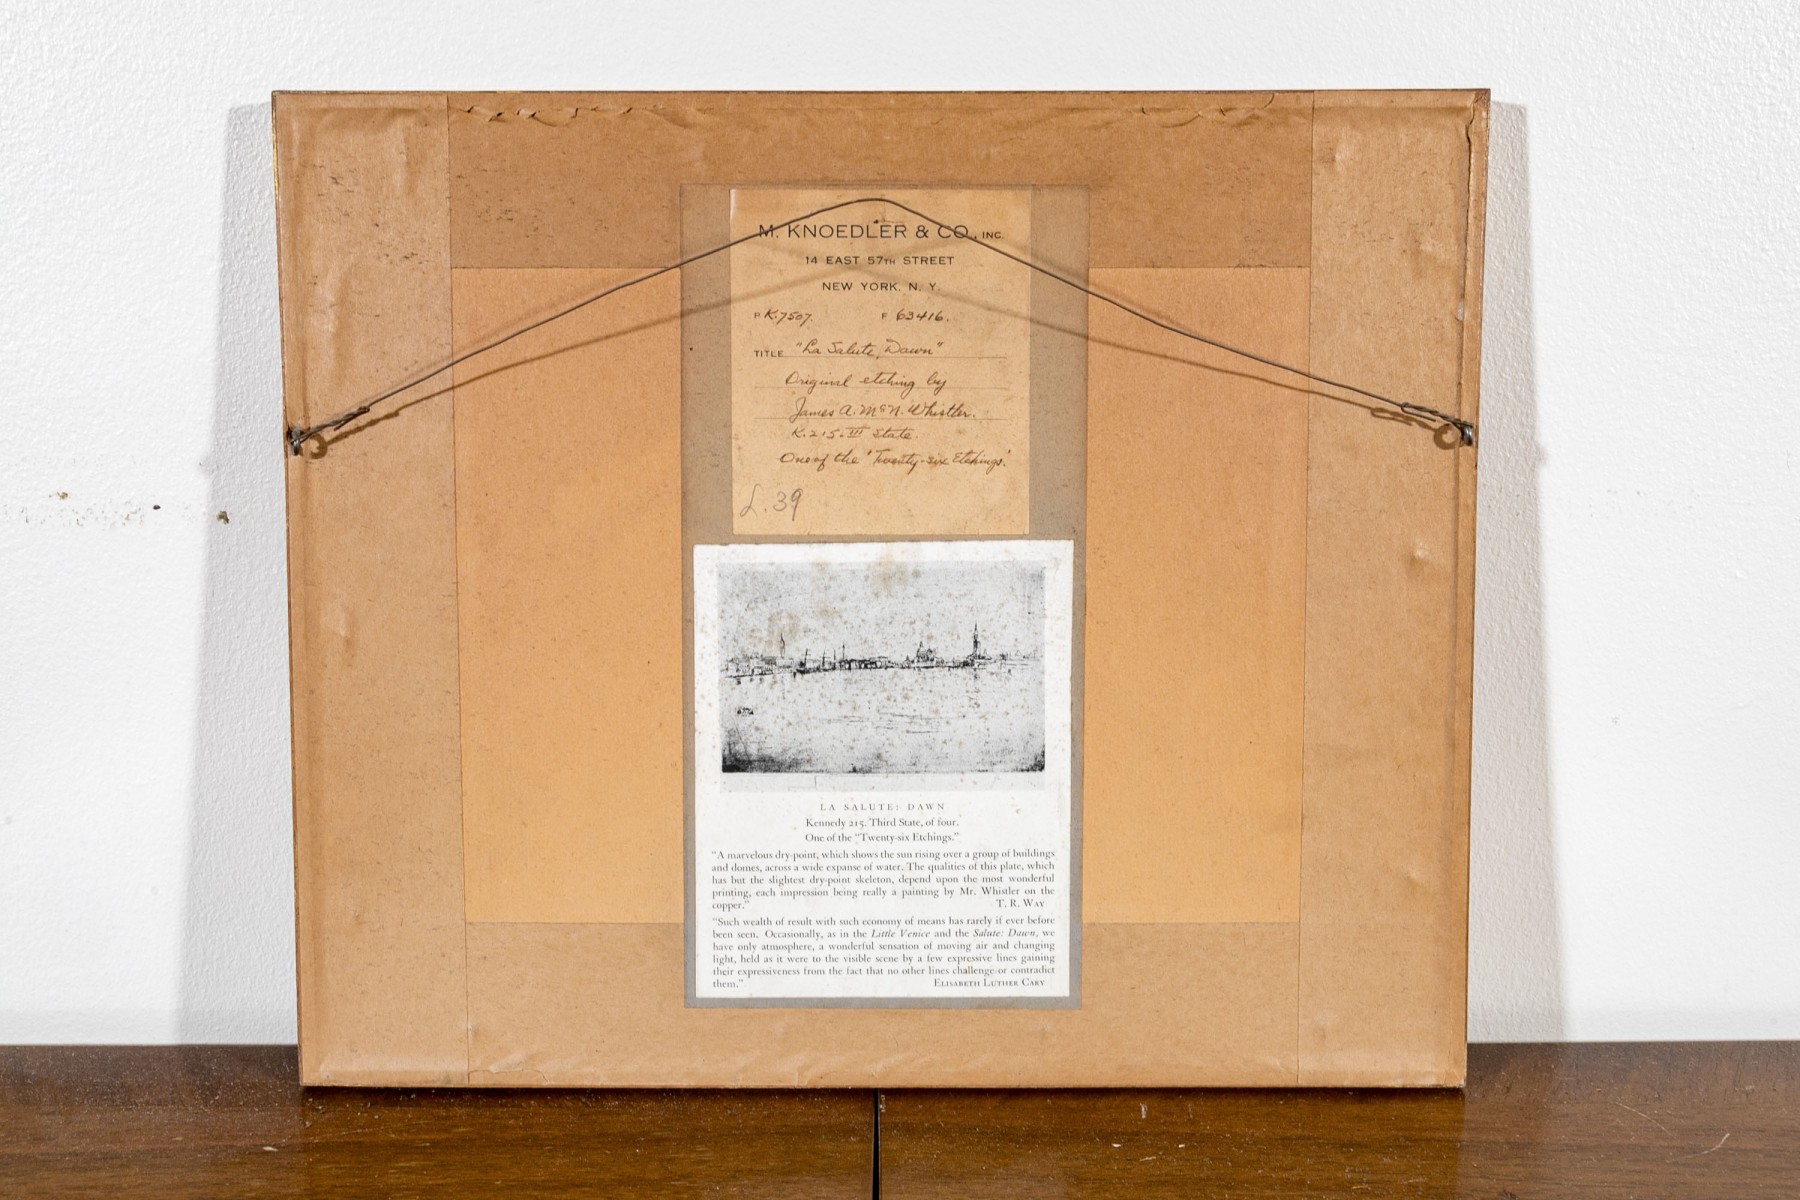 M. KNOEDLER & CO., INC.
14 EAST 57TH STREET
NEW YORK, N. Y.
P K.7507. F 63416.
TITLE "La Salute, Dawn"
Original etching by
James A. McN. Whistler.
K.215. III State.
One of the 'Twenty-six Etchings.'
L.39
LA SALUTE: DAWN
Kennedy 215. Third State, of four.
One of the "Twenty-six Etchings."
"A marvelous dry-point, which shows the sun rising over a group of buildings
and domes, across a wide expanse of water. The qualities of this plate, which
has but the slightest dry-point skeleton, depend upon the most wonderful
printing, each impression being really a painting by Mr. Whistler on the
copper." T. R. WAY
"Such wealth of result with such economy of means has rarely if ever before
been seen. Occasionally, as in the Little Venice and the Salute: Dawn, we
have only atmosphere, a wonderful sensation of moving air and changing
light, held as it were to the visible scene by a few expressive lines gaining
their expressiveness from the fact that no other lines challenge or contradict
them." ELISABETH LUTHER CARY